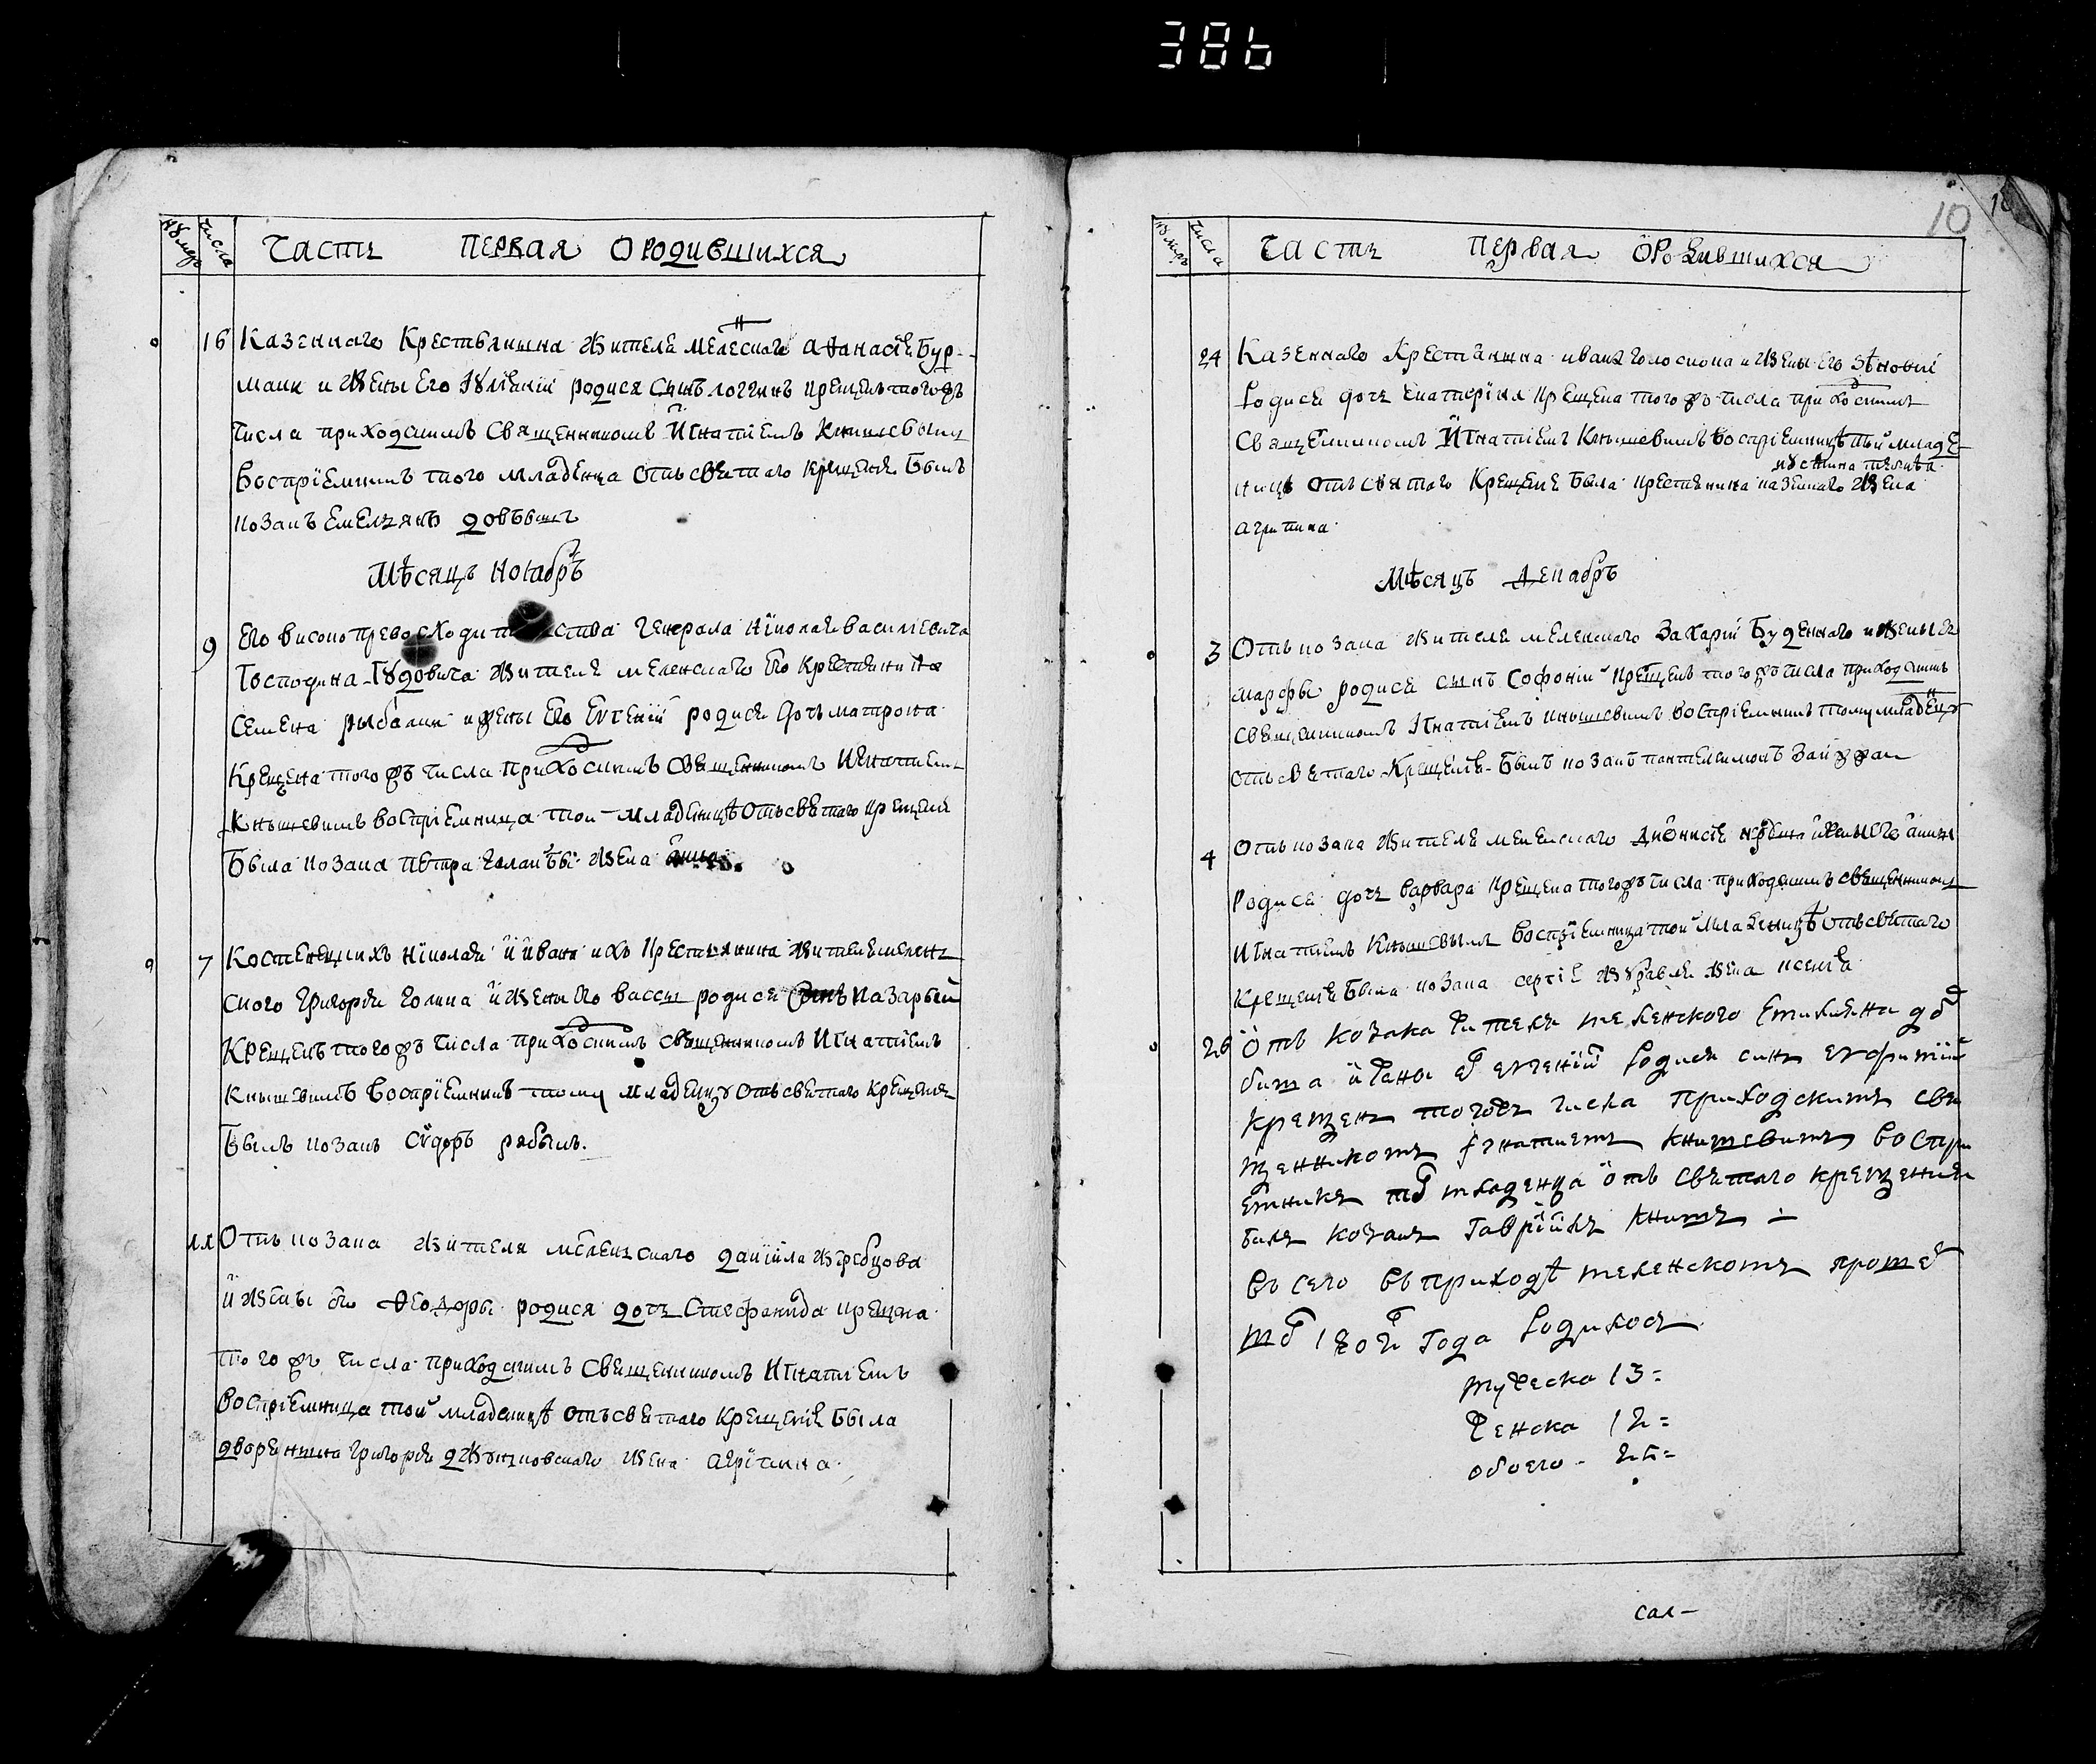 386
нумеръ числа Часть первая о родившихся
16 Казенного Крестьянина жителя меленскаго Афанасія Бур-
маки и жены Его Іуліяніи родися сынъ логгинъ крещенъ тогожъ
числа приходскимъ Священникомъ Игнатіемъ Кнышевымъ
Воспріемникъ того младенца отъ святаго крещенія Былъ
козакъ Емельянъ
Мѣсяцъ Ноіабрь
9 Его високопревосходительства генерала Николая василіевича
Господина Гудовича жителя меленскаго Его крестянина
семена рыбалки и жены Его Евгеніи родися дочь матрона
Крещена того жъ числа приходскимъ священникомъ Игнатіемъ
Кнышевимъ воспріемница той младеницѣ отъ святаго крещенія
Была козака петра жена
7 Костенецкихъ Николая и ивана ихъ крестьянина жителя мелен
ского григорія голика и жены Его вассы родися сынъ назарій
Крещенъ того жъ числа приходскимъ священникомъ Игнатіемъ
Кнышевимъ воспріемникъ тому младенцу отъ святаго крещенія
Былъ козакъ Сидоръ рябый.
11 Отъ козака жителя меленскаго даніила жребцова
и жены Его Феодоры родися дочь Стефанида крещена
того жъ числа приходскимъ священникомъ Игнатіемъ
воспріемница той младеницѣ отъ святаго крещенія Была
дворенина григорія жена агрипина
10
нумеръ числа Часть первая о Родившихся
24 Казенного Крестянина ивана голоскока и жены Его Зѣновіи
Родися дочь Екатеріна крещена того жъ числа приходскимъ
Священникомъ Игнатіемъ Кнышевимъ воспріемница той младе
ницѣ отъ святаго Крещенія Была крестянина казенного жена
агрипина
Мѣсяцъ Декабрь
3 Отъ козака жителя меленскаго Захарій Буденного и жены Его
марфы родися сынъ Софоній крещенъ того жъ числа приходскимъ
священникомъ Игнатіемъ кнышевимъ воспріемникъ тому младенцу
отъ святаго Крещенія Былъ козакъ пантелеимонъ
4 Отъ козака жителя меленскаго Дионисія и жены Его анны
Родися дочь варвара крещена того жъ числа приходскимъ священникомъ
Игнатіемъ Кнышевымъ воспріемница той младеницѣ отъ святаго
Крещенія Была козака сергія журавля жена ксенія
26 Отъ козака жителя меленского Емиліяна до
биша и жены его евгеніи Родися синъ
крещенъ тогожъ числа приходскимъ свя
щенникомъ Игнатиемъ Книшевимъ воспри
емникъ того младенца отъ святаго крещения
билъ козакъ Гаврїилъ Книшъ
Въсего въ приходѣ меленскомъ проше
шого 1802го года Родилось
мужеска 13
женска 12
обоего 25
сал-